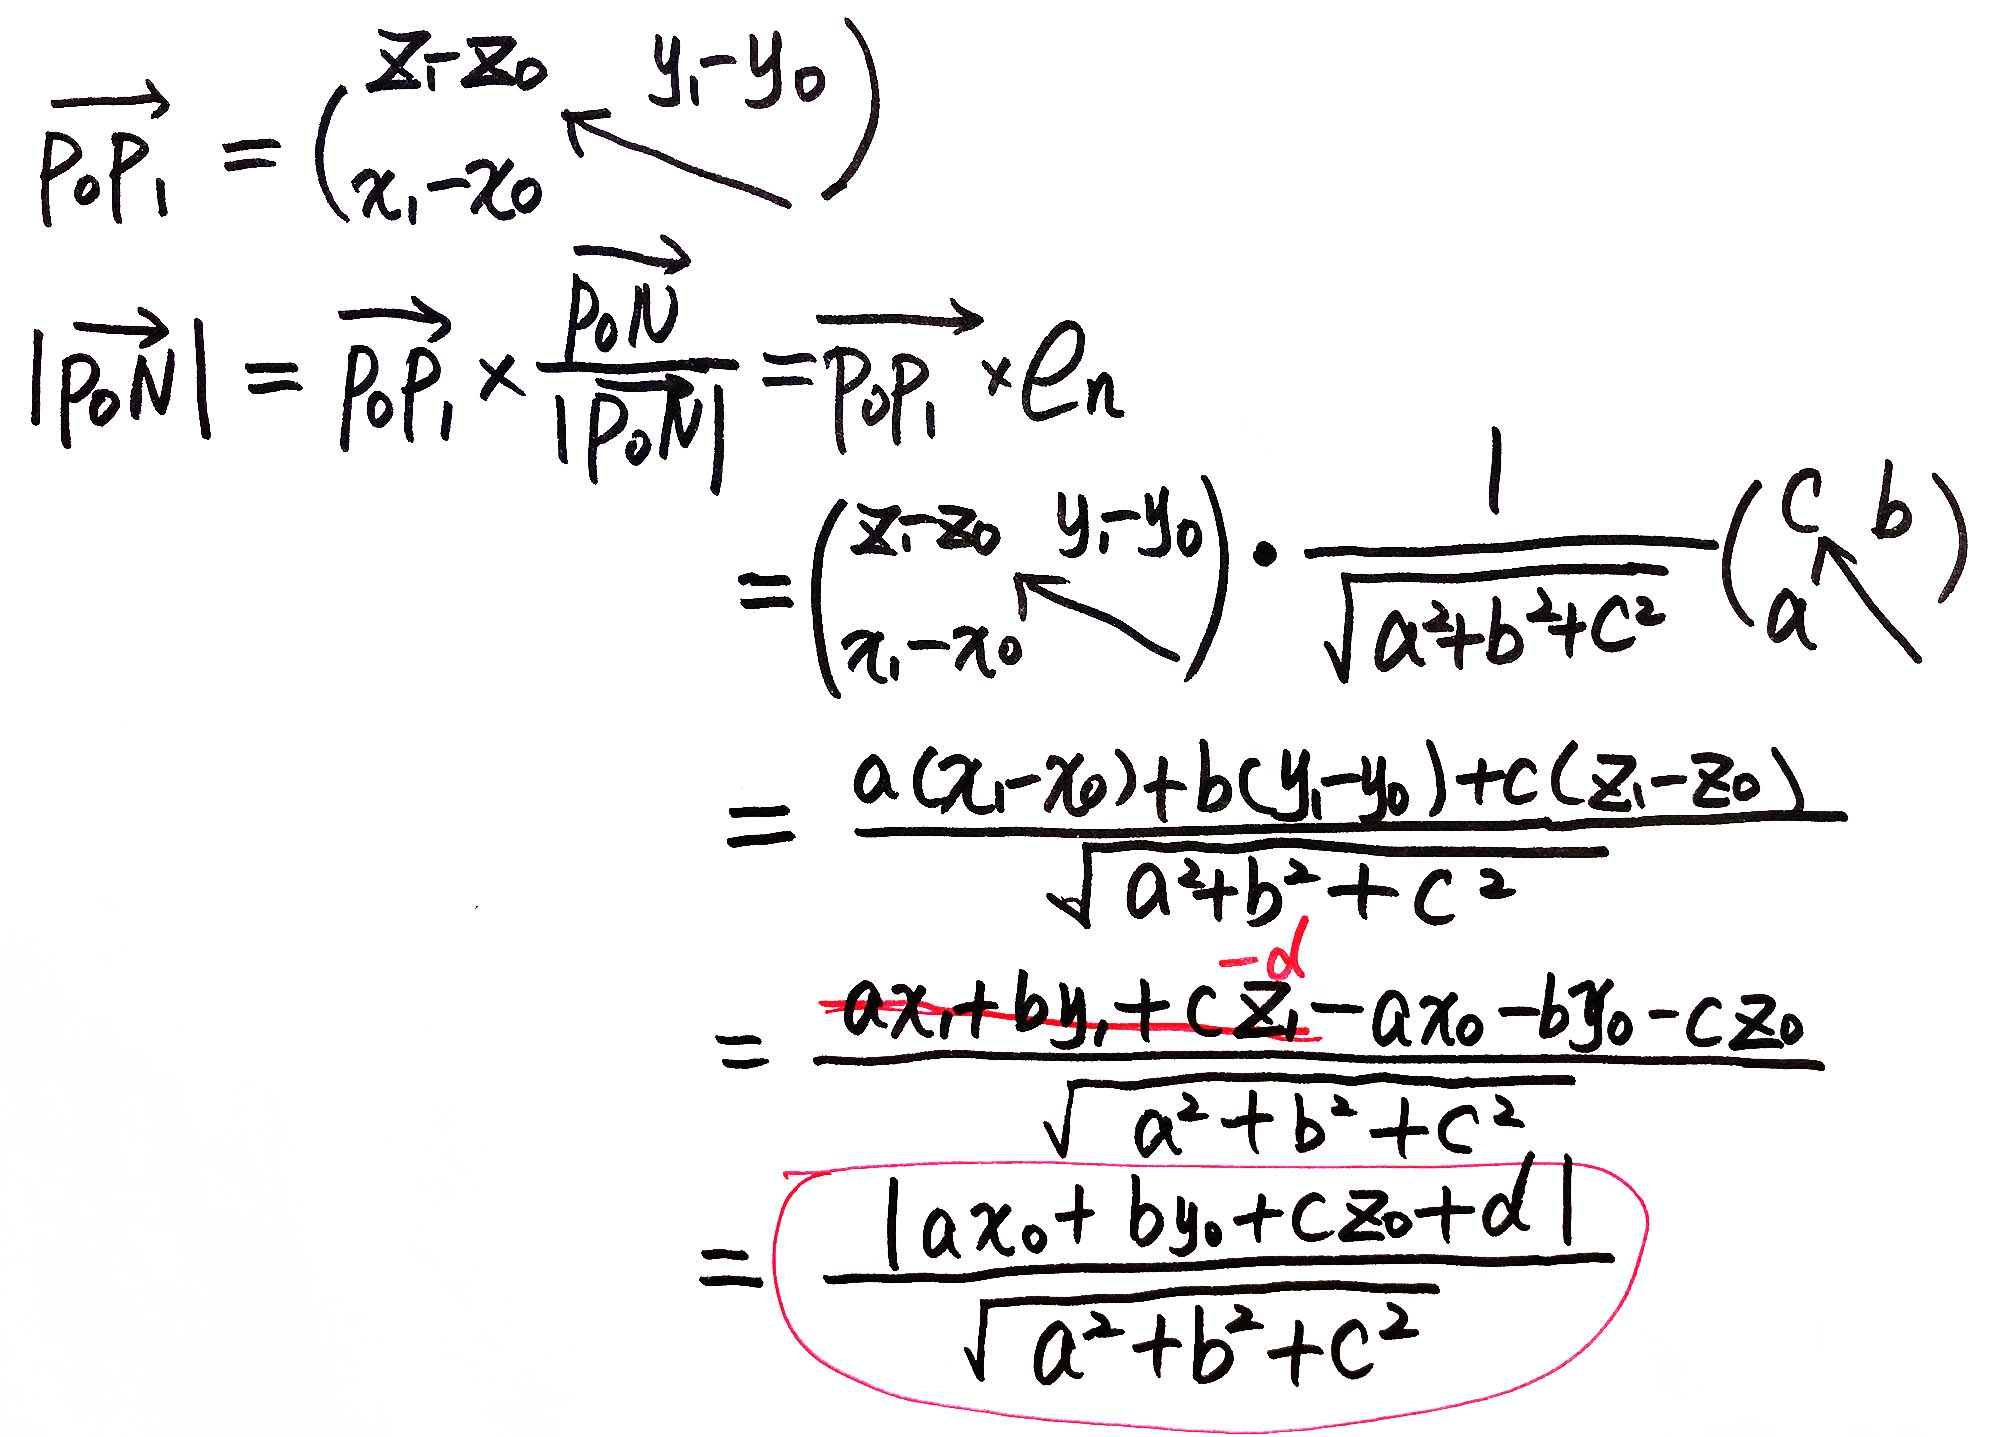 $\overrightarrow{P_0P_1} = \begin{pmatrix} z_1-z_0 & y_1-y_0 \\ x_1-x_0 & \nwarrow \end{pmatrix}$
$|\overrightarrow{P_0N}| = \overrightarrow{P_0P_1} \times \frac{\overrightarrow{P_0N}}{|\overrightarrow{P_0N}|} = \overrightarrow{P_0P_1} \times e_n$
$= \begin{pmatrix} z_1-z_0 & y_1-y_0 \\ x_1-x_0 & \nwarrow \end{pmatrix} \cdot \frac{1}{\sqrt{a^2+b^2+c^2}} \begin{pmatrix} c & b \\ a & \nwarrow \end{pmatrix}$
$= \frac{a(x_1-x_0)+b(y_1-y_0)+c(z_1-z_0)}{\sqrt{a^2+b^2+c^2}}$
$-d$
$= \frac{ax_1+by_1+cz_1-ax_0-by_0-cz_0}{\sqrt{a^2+b^2+c^2}}$
$= \frac{|ax_0+by_0+cz_0+d|}{\sqrt{a^2+b^2+c^2}}$